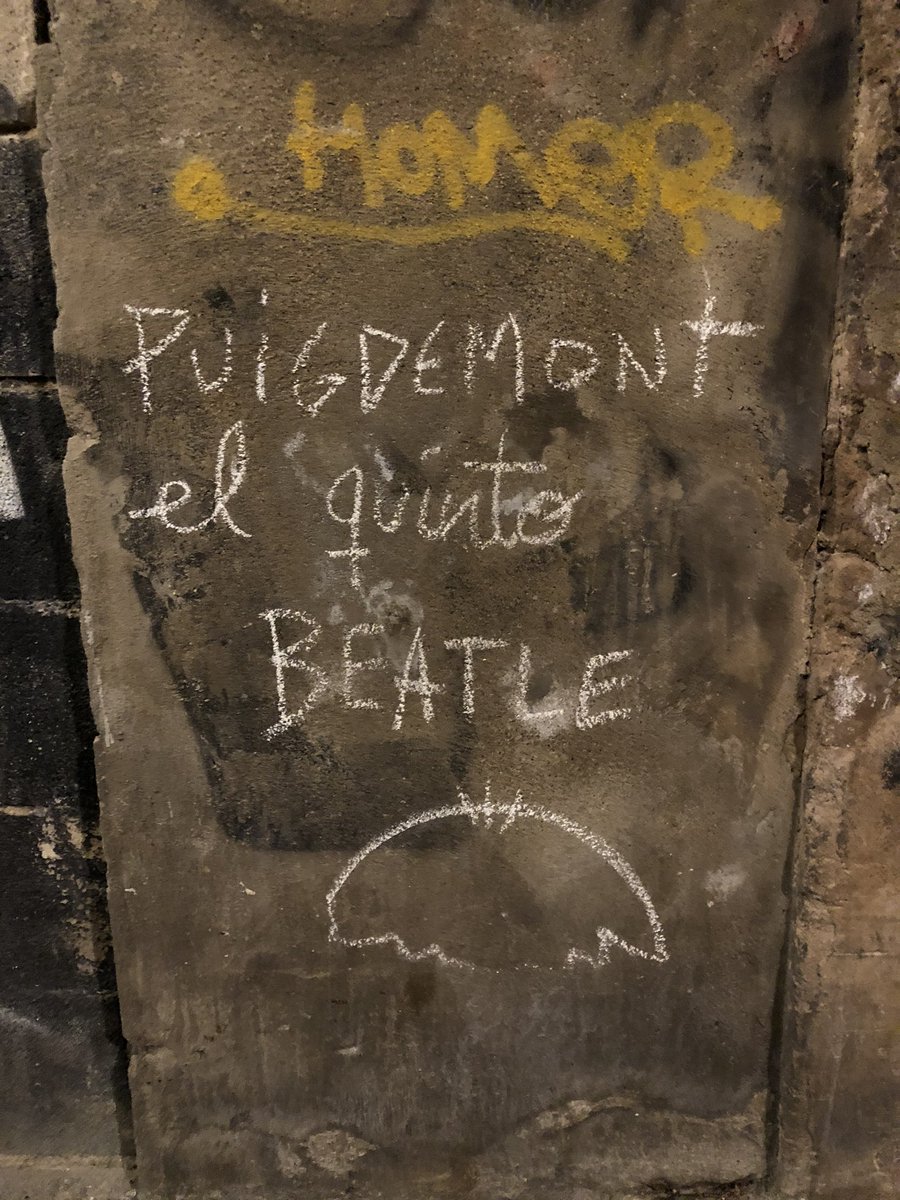 HOMER
PUiGDEMONt
el quinto
BEATLE